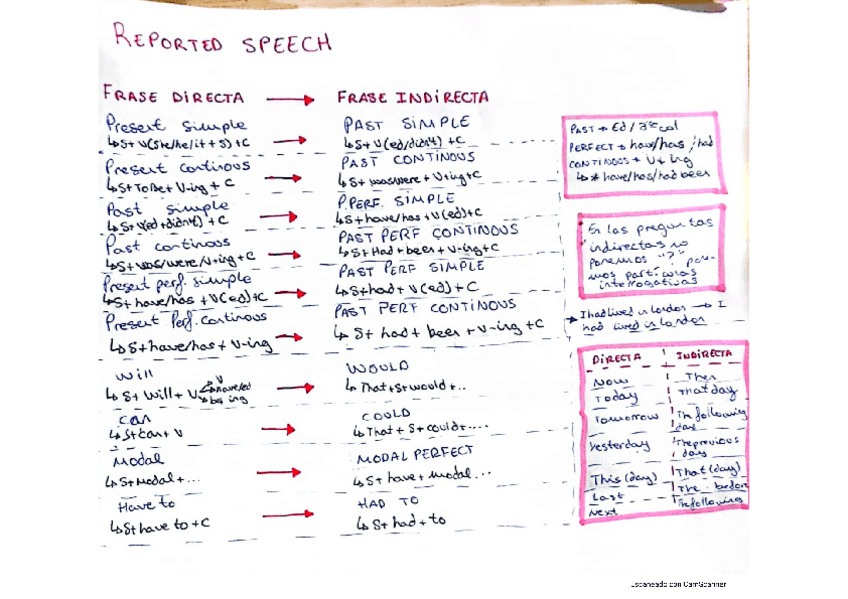 REPORTED SPEECH
FRASE DIRECTA → FRASE INDIRECTA
Present simple → PAST SIMPLE
↳S+V(she/he/it+s)+C ↳S+V(ed/didn't)+C
Present continous → PAST CONTINOUS
↳S+ToBe+V-ing+C ↳S+was/were+V-ing+C
Past simple → P.PERF. SIMPLE
↳S+V(ed+didn't)+C ↳S+have/has+V(ed)+C
Past continous → PAST PERF CONTINOUS
↳S+was/were/V-ing+C ↳S+Had+been+V-ing+C
Present perf. simple → PAST PERF SIMPLE
↳S+have/has+V(ed)+C ↳S+had+V(ed)+C
Present Perf. continous → PAST PERF CONTINOUS
↳S+have/has+V-ing ↳S+had+been+V-ing+C
Will → WOULD
↳S+Will+V ↳That+S+would+..
Can → COULD
↳S+can+V ↳That+S+could+....
Modal → MODAL PERFECT
↳S+Modal+... ↳S+have+Modal...
Have to → HAD TO
↳S+have to+C ↳S+had+to
PAST → Ed/2ªcol
PERFECT → have/has/had
CONTINOUS → V+ing
↳* have/has/had been
En las preguntas
indirectas no
ponemos "?"
partículas
interrogativas
→ I had lived in london → I
had lived in london
DIRECTA INDIRECTA
Now Then
Today That day
Tomorrow The following
day
Yesterday The previous
day
This (day) That (day)
Last The before
Next The following
Escaneado con CamScanner